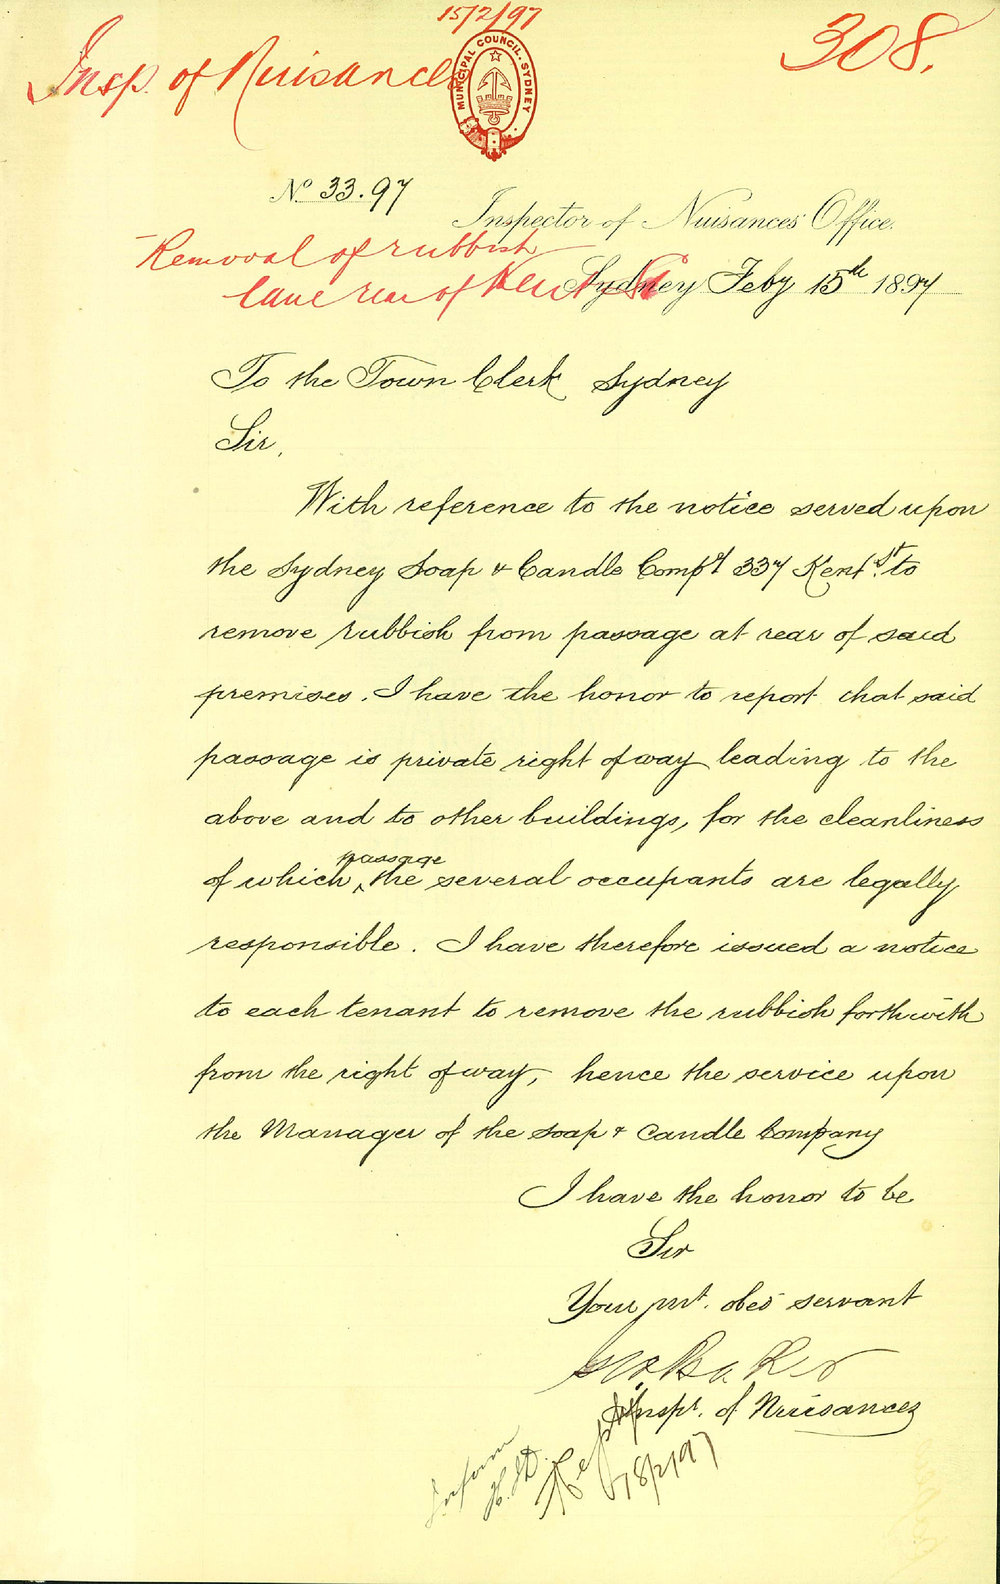 15/2/97
Insp. of Nuisances
308.
MUNICIPAL COUNCIL. SYDNEY
No 33.97
Inspector of Nuisances' Office.
Removal of rubbish
lane rear of Kent St
Sydney Feby 15th 1897
To the Town Clerk Sydney
Sir,
With reference to the notice served upon
the Sydney Soap & Candle Compy 337 Kent St. to
remove rubbish from passage at rear of said
premises. I have the honor to report that said
passage is private right of way leading to the
above and to other buildings, for the cleanliness
of which passage the several occupants are legally
responsible. I have therefore issued a notice
to each tenant to remove the rubbish forthwith
from the right of way, hence the service upon
the Manager of the Soap & Candle Company
I have the honor to be
Sir
Your mt. obed servant
Baker
Inspr. of Nuisances
Inform
18/2/97